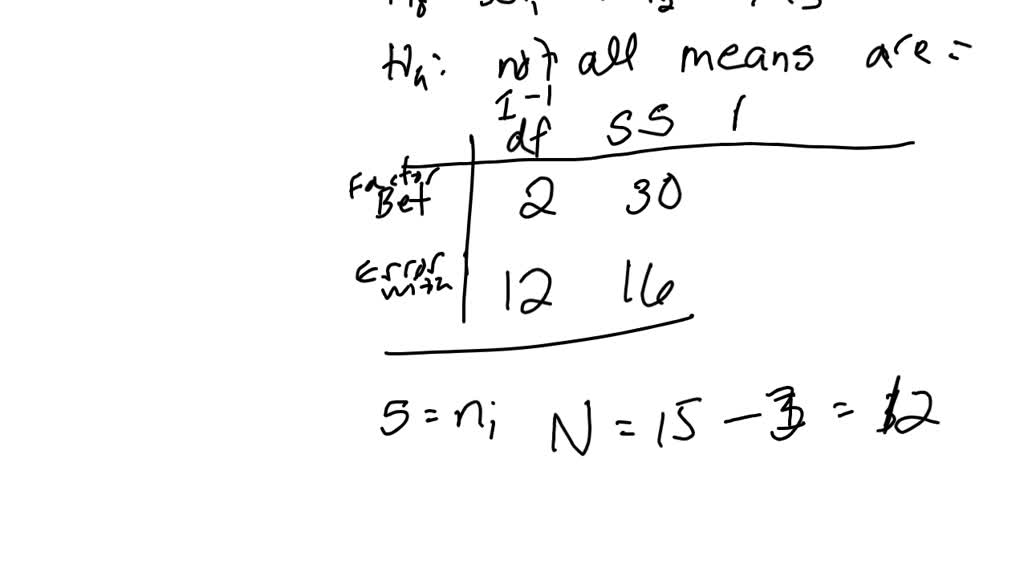 Ha: not all means are =
I-1
df SS
Factor
Bet 2 30
Error
12 16
5 = ni N = 15 - 3 = 12